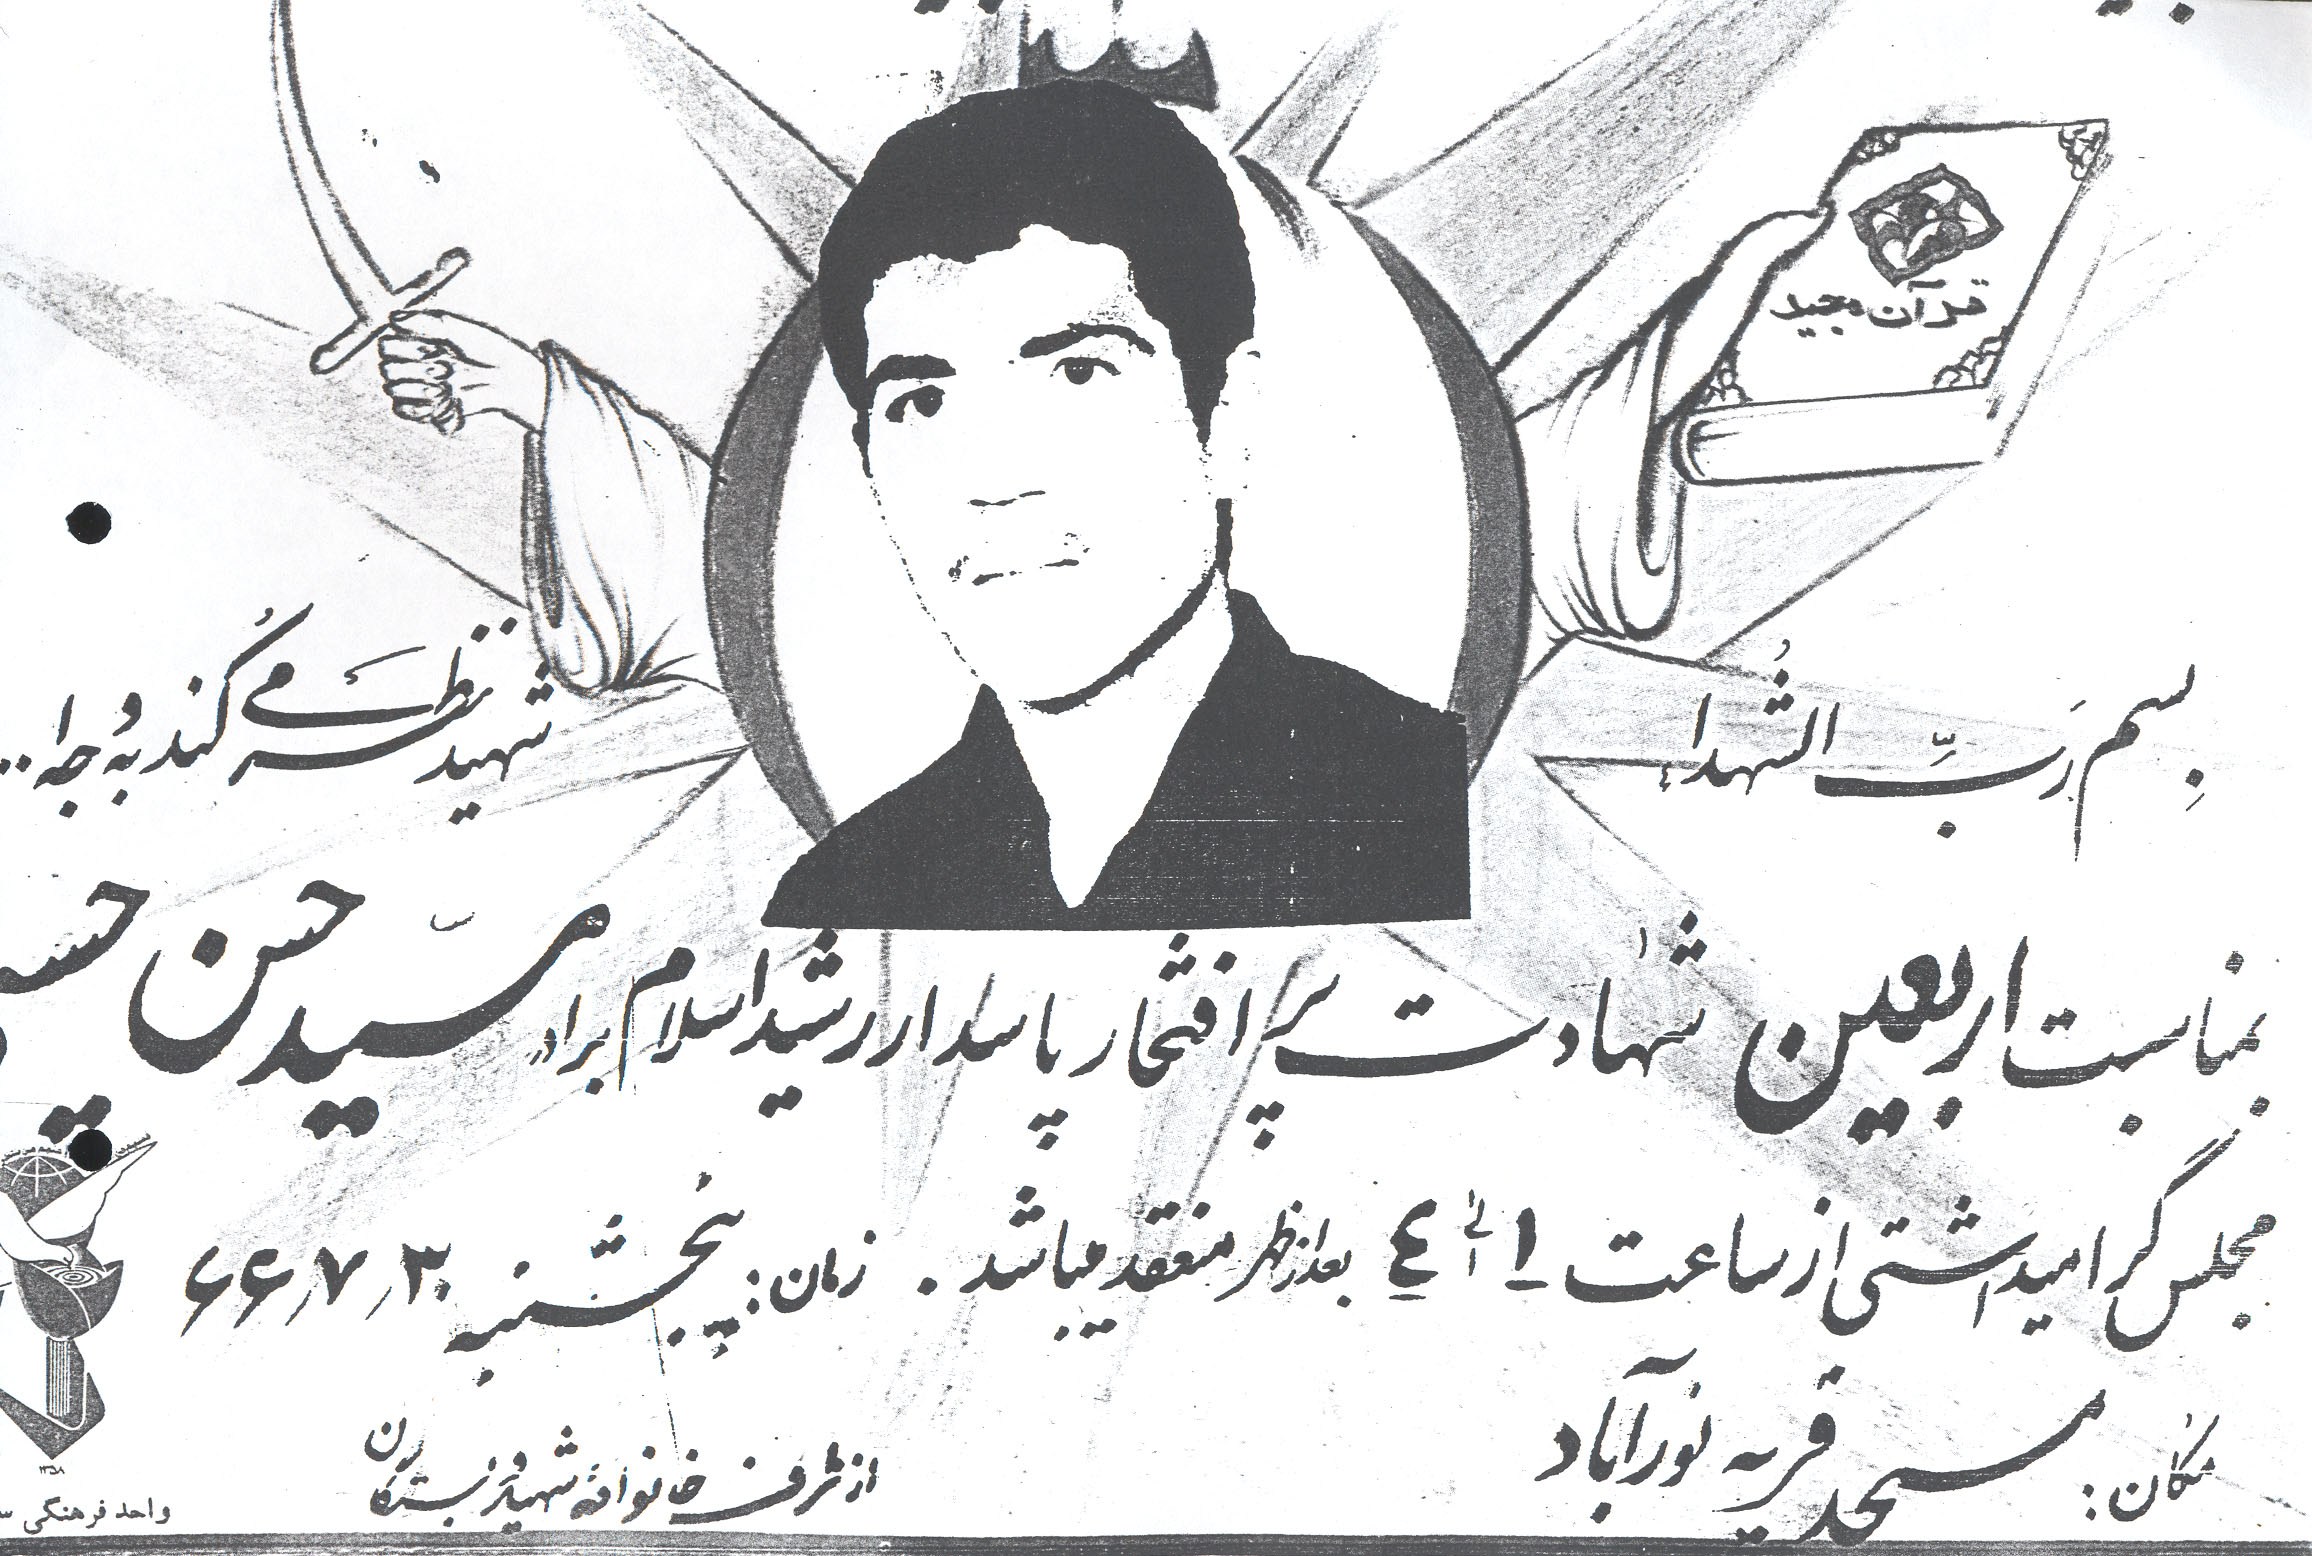 قرآن مجید
بسم رَبِّ الشُهداءِ
شهید نظَر مے کُند به وجه ا
بمناسبت اربعین شهادت پر افتخار پاسدار رشید اسلام برادر سیّد حسن
مجلس گرامیداشتی از ساعت ١ الی ٤ بعد از ظهر منعقد میباشد . زمان : پنجشنبه ۶۶٫۷٫۳۰
مکان : مسجد قریه نورآباد
از طرف خانواده شهید و بستگان
۱۳۵۸
واحد فرهنگی